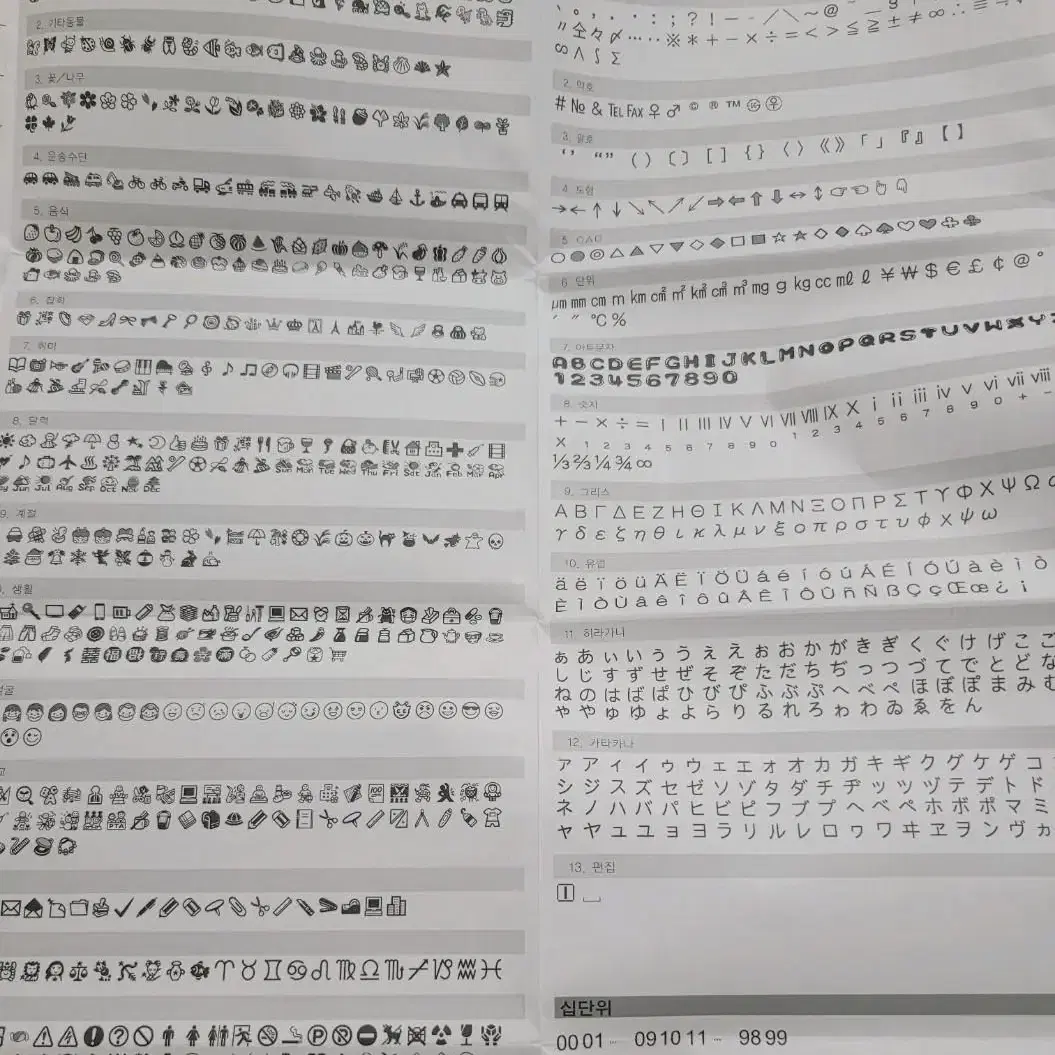 2. 기타동물
3. 꽃/나무
4. 운송수단
5. 음식
6. 잡화
7. 취미
8. 달력
Sun Mon Tue Wed Thu Fri Sat Jan Feb Mar Apr
Jun Jul Aug Sep Oct Nov Dec
9. 계절
생활
얼굴
:;?!
〃仝々〆…‥※*+-×÷=<>≦≧±≠∞∴
∽∧∫∑
2. 약호
#№&TEL FAX♀♂©®TM
3. 괄호
‘’“”()〔〕[]{}〈〉《》「」『』【】
4. 도형
→←↑↓↘↖↗↙⇨⇦⇧⇩↔↕☞☜
○●◎△▲▽▼◇◆□■☆★
6. 단위
μm mm cm m km cm² m² km² cm³ m³ mg g kg cc mℓ ℓ ¥₩$€£¢@°
′″℃%
7. 아트문자
ABCDEFGHIJKLMNOPQRSTUVWXY
1234567890
8. 숫자
+-×÷=ⅠⅡⅢⅣⅤⅥⅦⅧⅨⅩⅰⅱⅲⅳⅴⅵⅶⅷ
× 1 2 3 4 5 6 7 8 9 0 1 2 3 4 5 6 7 8 9 0 + -
⅓⅔¼¾∞
9. 그리스
ΑΒΓΔΕΖΗΘΙΚΛΜΝΞΟΠΡΣΤΥΦΧΨΩ
γδεζηθικλμνξοπρστυφχψω
10. 유럽
äëïöüÄËÏÖÜáéíóúÁÉÍÓÚàèìò
ÈÌÒÙâêîôûÂÊÎÔÛñÑßÇçŒœ¿¡
11. 히라가나
ぁあぃいぅうぇえぉおかがきぎくぐけげこご
しじすずせぜそぞただちぢっつづてでとどな
ねのはばぱひびぴふぶぷへべぺほぼぽまみむ
ゃやゅゆょよらりるれろゎわゐゑをん
12. 가타카나
ァアィイゥウェエォオカガキギクグケゲコ
シジスズセゼソゾタダチヂッツヅテデトド
ネノハバパヒビピフブプヘベペホボポマミ
ャヤュユョヨラリルレロヮワヰヱヲンヴヵ
13. 편집
십단위
00 01 … 09 10 11 … 98 99